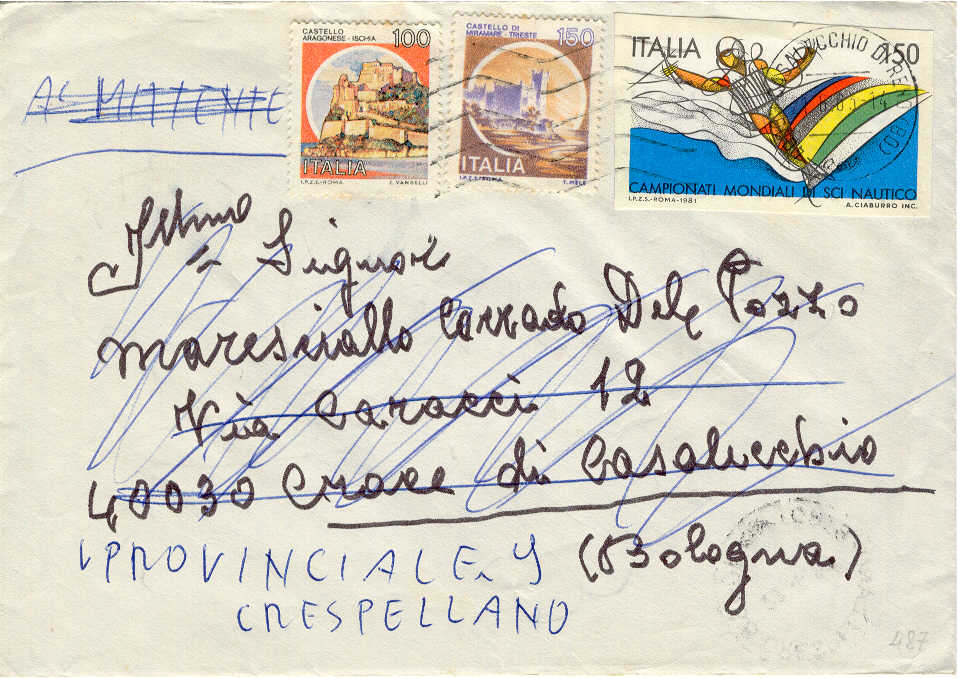 CASTELLO
ARAGONESE - ISCHIA 100
ITALIA
I.P.Z.S.-ROMA E. VANGELLI
CASTELLO DI
MIRAMARE - TRIESTE 150
ITALIA
I.P.Z.S.-ROMA T. MELE
ITALIA 150
CAMPIONATI MONDIALI DI SCI NAUTICO
I.P.Z.S.-ROMA-1981 A. CIABURRO INC.
AL MITTENTE
Illmo
Signor
Maresciallo Corrado Del Pozzo
Via Caracci 12
40030 Croce di Casalecchio
(Bologna)
V PROVINCIALE. 9
CRESPELLANO
487